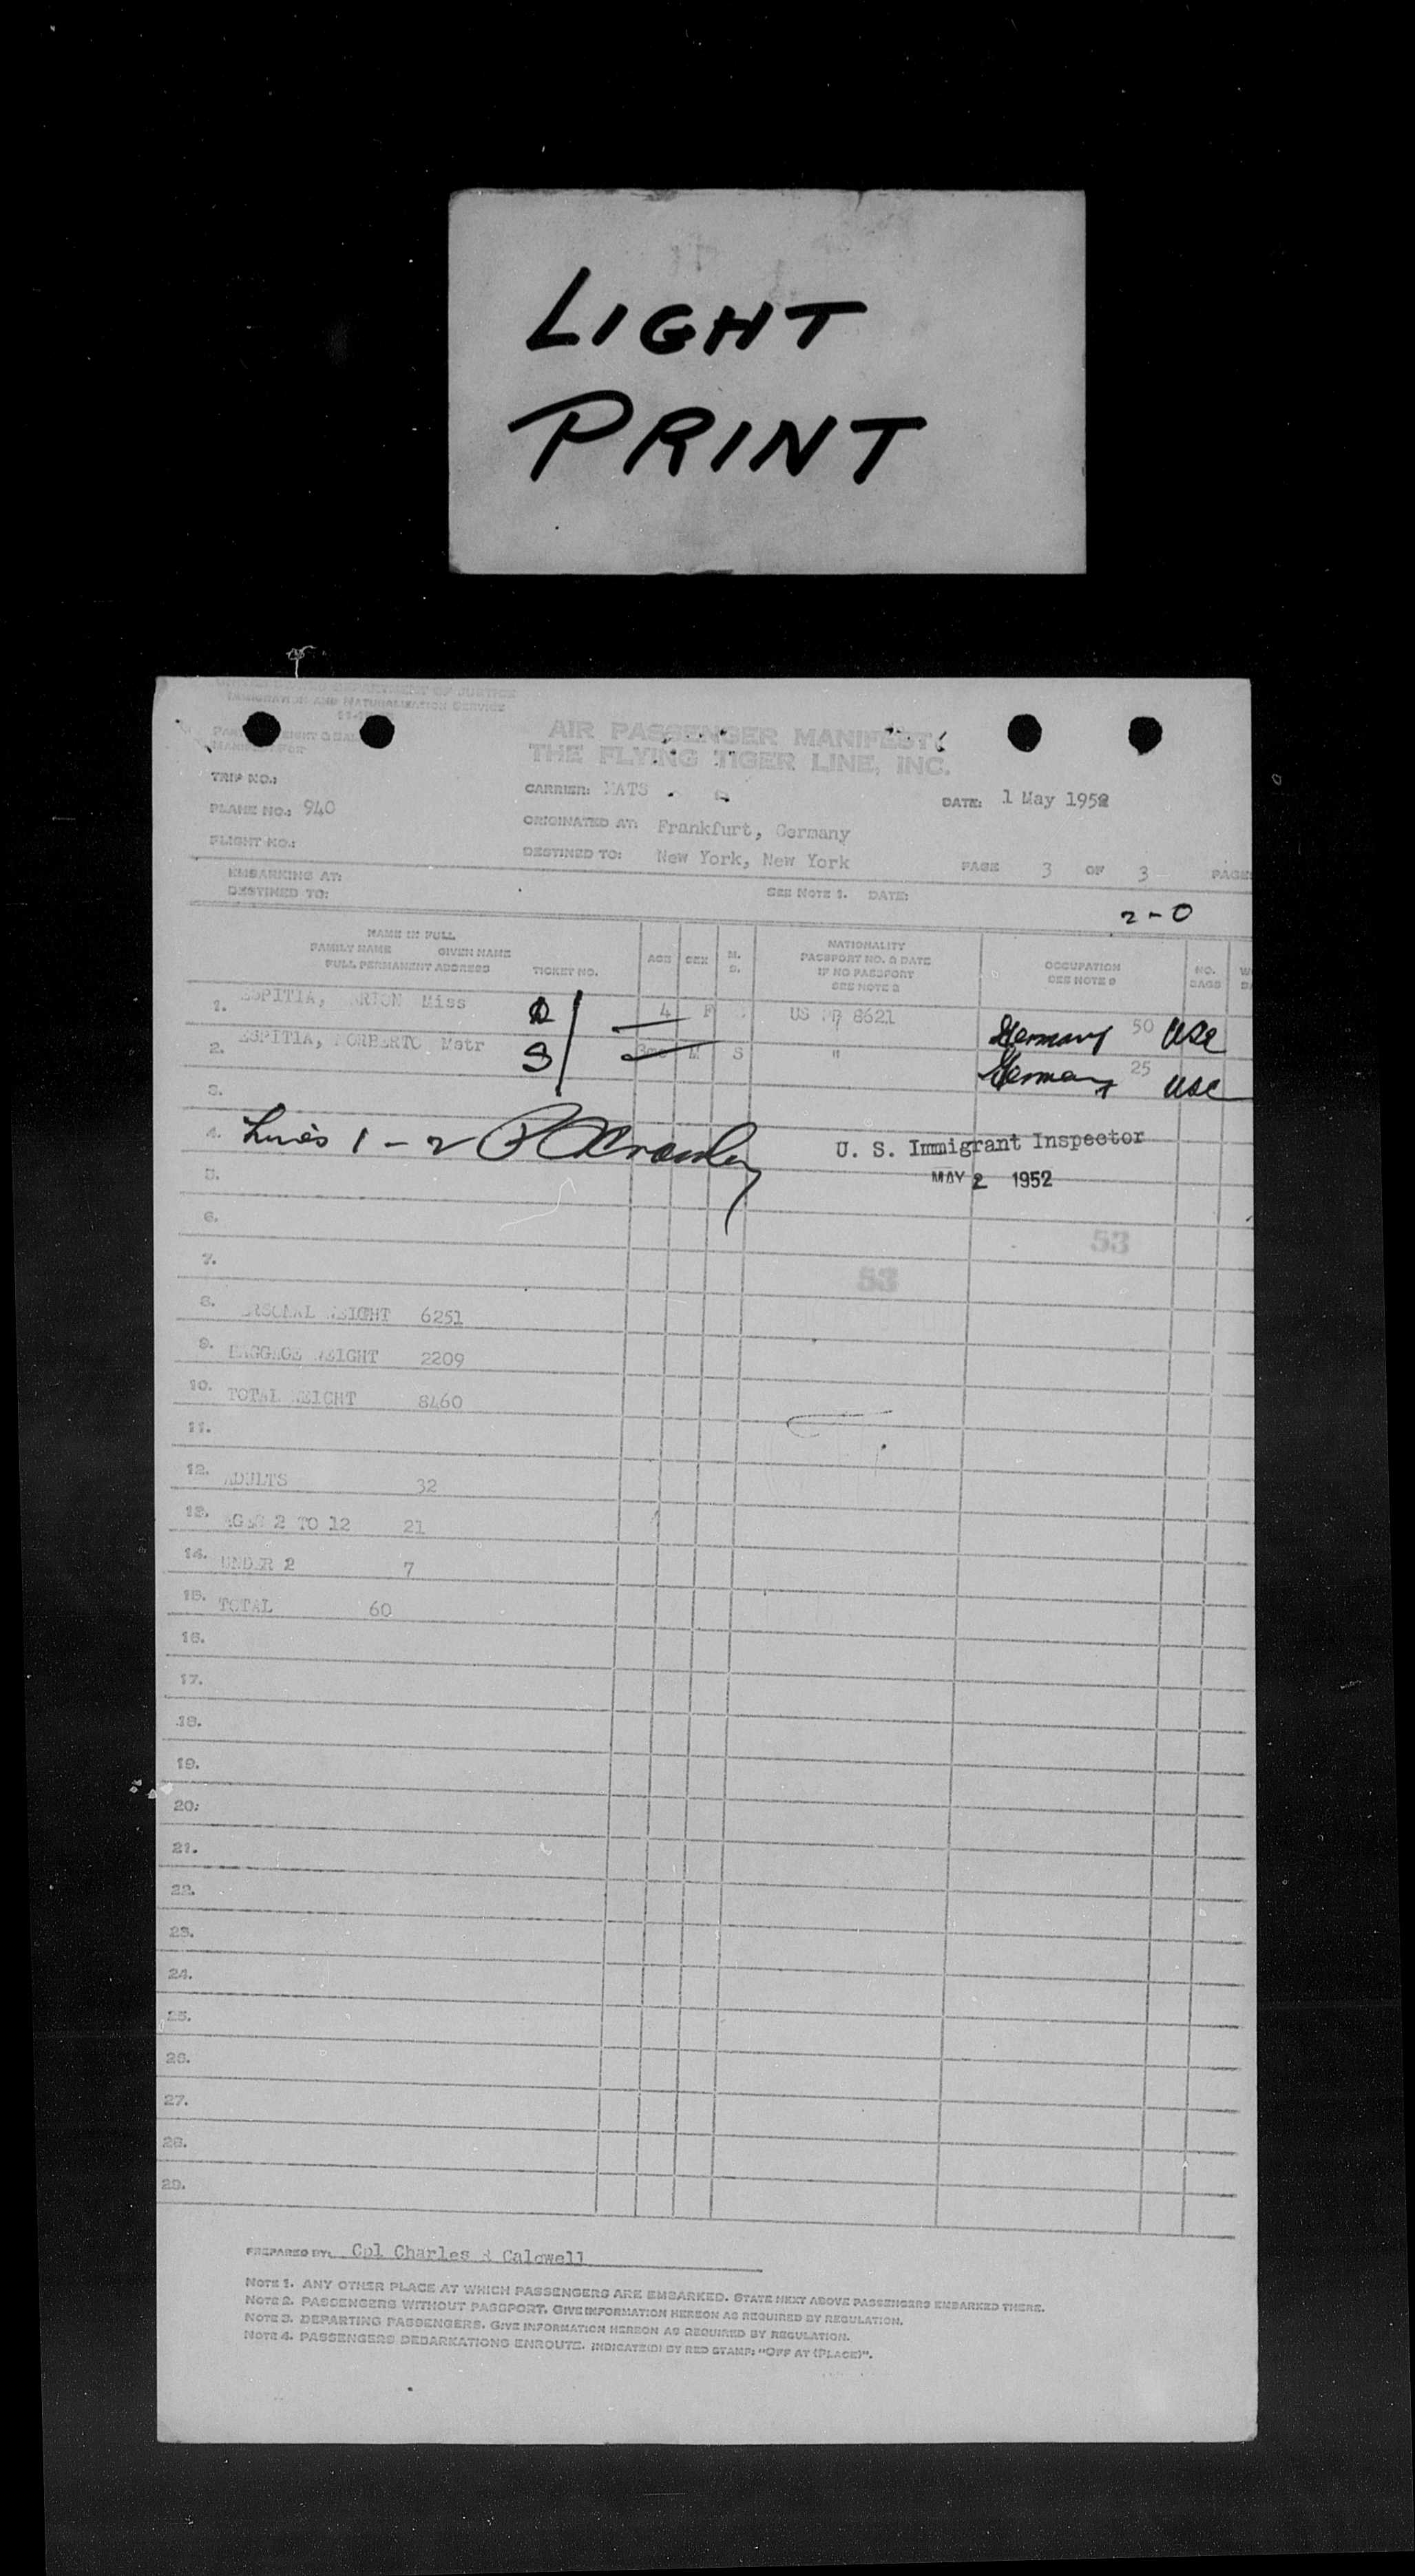 LIGHT
PRINT
UNITED STATES DEPARTMENT OF JUSTICE
IMMIGRATION AND NATURALIZATION SERVICE
MANIFEST FOR
AIR PASSENGER MANIFEST
THE FLYING TIGER LINE, INC.
TRIP NO.:
CARRIER: MATS
DATE: 1 May 1952
PLANE NO.: 940
ORIGINATED AT: Frankfurt, Germany
FLIGHT NO.:
DESTINED TO: New York, New York
PAGE 3 OF 3 PAGES
EMBARKING AT:
DESTINED TO:
SEE NOTE 1. DATE:
2-0
NAME IN FULL
FAMILY NAME GIVEN NAME
FULL PERMANENT ADDRESS TICKET NO.
AGE
SEX
M.
S.
NATIONALITY
PASSPORT NO. & DATE
IF NO PASSPORT
SEE NOTE 2
OCCUPATION
SEE NOTE 3
NO.
BAGS
1. ESPITIA, MARION Miss 4 F US PP 8621 Germany 50 USC
2. ESPITIA, NORBERTO Mstr S M S " Germany 25 USC
3.
4. Lines 1-2 U. S. Immigrant Inspector
MAY 2 1952
5.
6.
53
7.
53
8. PERSONAL WEIGHT 6251
9. BAGGAGE WEIGHT 2209
10. TOTAL WEIGHT 8460
11.
12. ADULTS 32
13. AGES 2 TO 12 21
14. UNDER 2 7
15. TOTAL 60
16.
17.
18.
19.
20.
21.
22.
23.
24.
25.
26.
27.
28.
29.
PREPARED BY: Cpl Charles R Caldwell
NOTE 1. ANY OTHER PLACE AT WHICH PASSENGERS ARE EMBARKED. STATE NEXT ABOVE PASSENGERS EMBARKED THERE.
NOTE 2. PASSENGERS WITHOUT PASSPORT. GIVE INFORMATION HEREON AS REQUIRED BY REGULATION.
NOTE 3. DEPARTING PASSENGERS. GIVE INFORMATION HEREON AS REQUIRED BY REGULATION.
NOTE 4. PASSENGERS DEBARKATIONS ENROUTE. INDICATE(D) BY RED STAMP: "OFF AT (PLACE)".